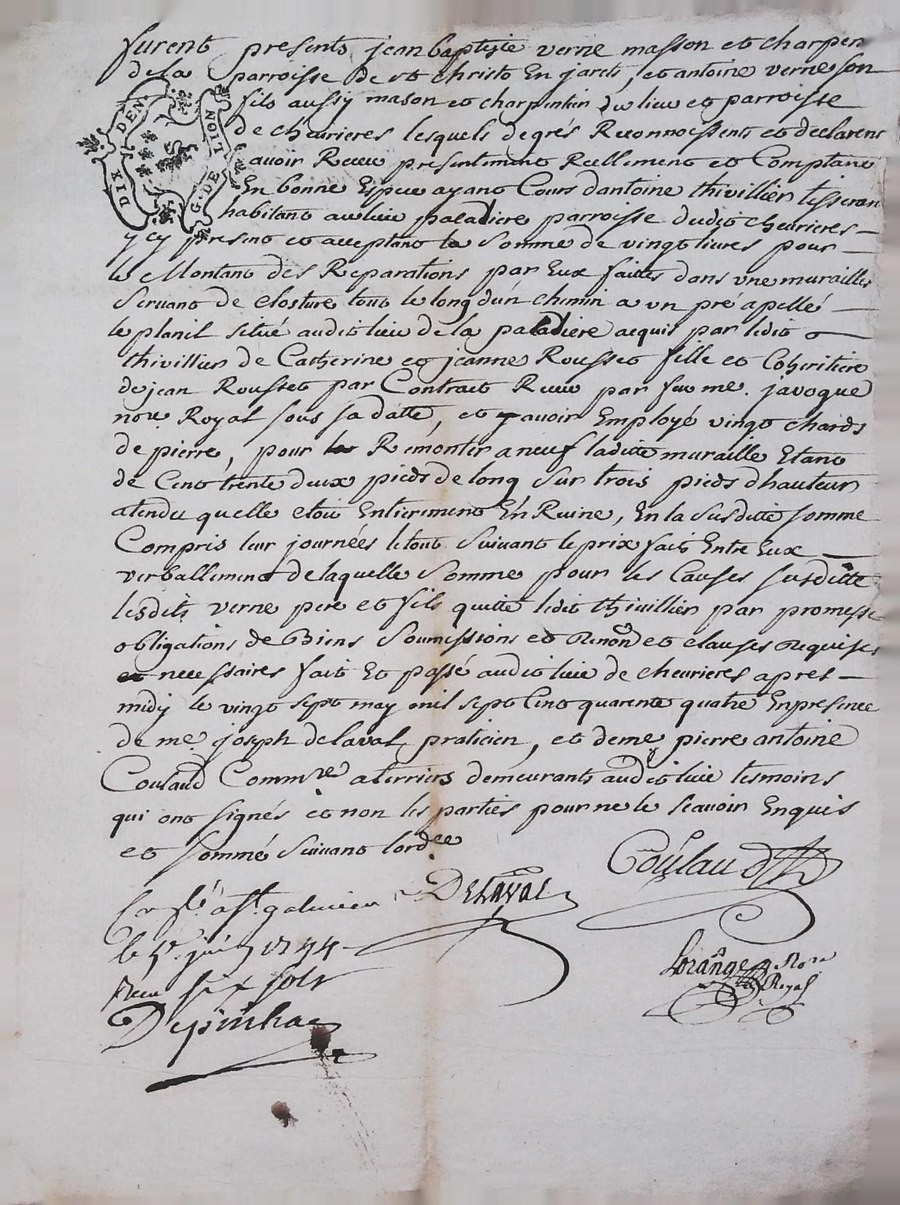 furent presents jean baptiste verne masson et charpen
de la parroisse de st christo En jarets, et antoine verne son
fils aussy mason et charpentier du lieu et parroisse
de chevrieres lesquels de grés Reconnoissents et declarens
avoir Receu presentement Reellement et Comptant
En bonne Espece ayant Cours d'antoine thivillier tisseran
habitant au lieu paladiere parroisse dudit chevrieres
y cy present et acceptant la Somme de vingt livres pour
le Montant des Reparations par Eux faittes dans vne muraille
Servant de closture tout le long d'un chemin a vn pré apellé
le planil situé audit lieu de la paladiere acquis par ledit
thivillier de Catherine et jeanne Rousset fille et Coheritiere
de jean Rousset par Contrait Receu par feu me. javogue
nore. Royal sous sa datte, et pavoir Employé vingt chards
de pierre, pour la Remonter a neuf laditte muraille Etant
de Cent trente deux pieds de long sur trois pieds d'hauteur
atendu quelle etoit Entierement En Ruine, En la Susditte somme
Compris leur journées le tout Suivant le prix fait Entre Eux
verballement de laquelle Somme pour les Causes susditte
lesdits verne pere et fils quitte ledit thivillier par promesse
obligations de Biens Soumissions et Renond et clauses requises
et necessaires fait Et passé audit lieu de chevrieres apres
midy le vingt sept may mil sept Cent quarente quatre En presence
de me. joseph delaval praticien, et de me pierre antoine
Coulaud Commre a terriers demeurants audit lieu tesmoins
qui ont signés et non les parties pour ne le scavoir Enquis
et sommé suivant lordce
Coulaud
Delaval
Conllé a st galmier
le 5e juin 1744
Recu six sols
Depinhac
Lorange Nore
Royal
DIX DEN
G. DE LION